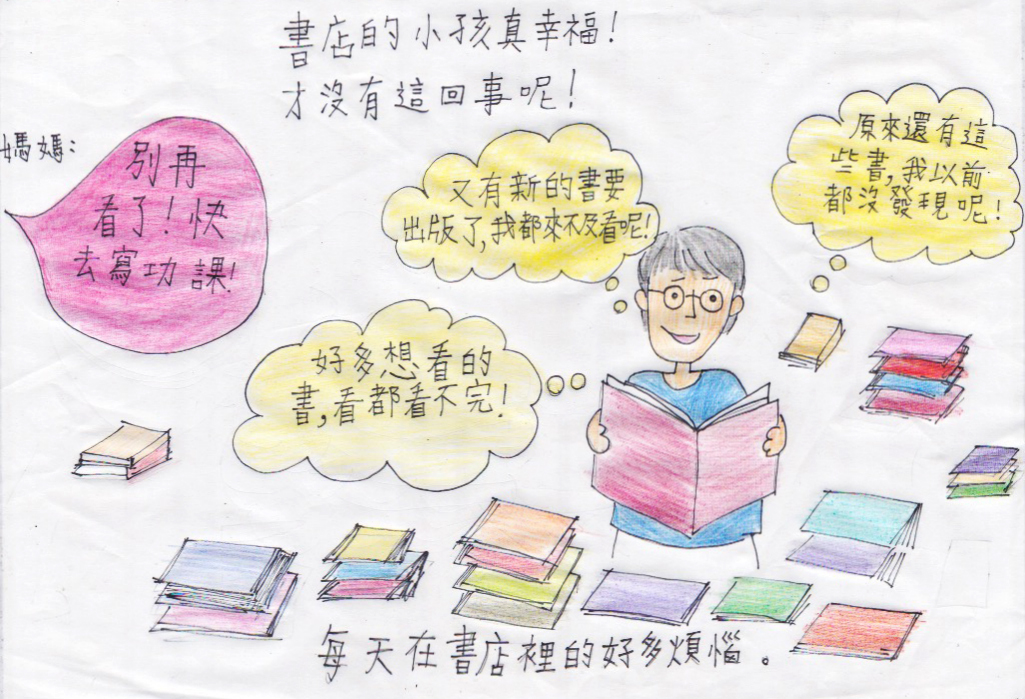 書店的小孩真幸福！
才沒有這回事呢！
媽媽：
別再
看了！快
去寫功課！
又有新的書要
出版了，我都來不及看呢！
原來還有這
些書，我以前
都沒發現呢！
好多想看的
書，看都看不完！
每天在書店裡的好多煩惱。